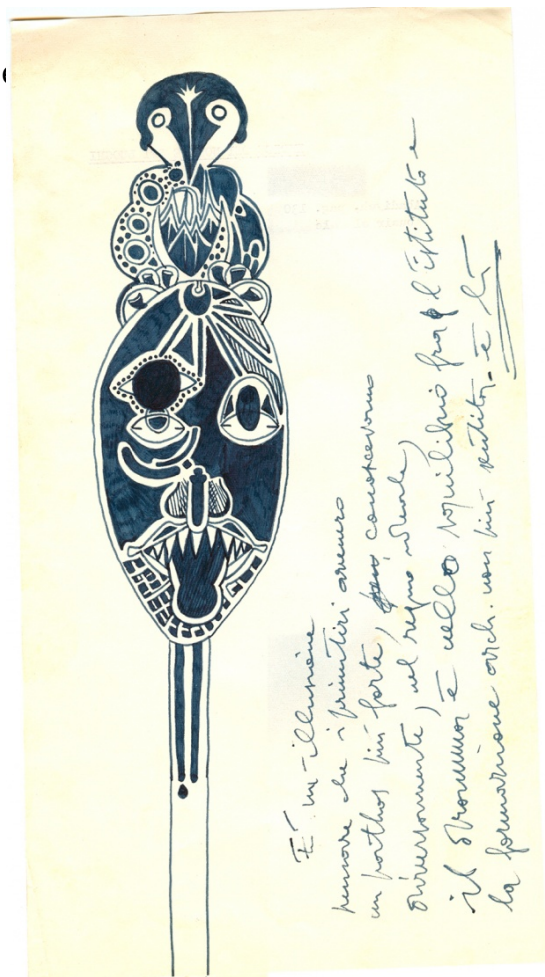 E' un'illusione
pensare che i primitivi avessero
un pathos più forte, conoscevano
diversamente, nel regno
il dramma è nello squilibrio fra l'istituto e
la formazione arch. non più - è lì